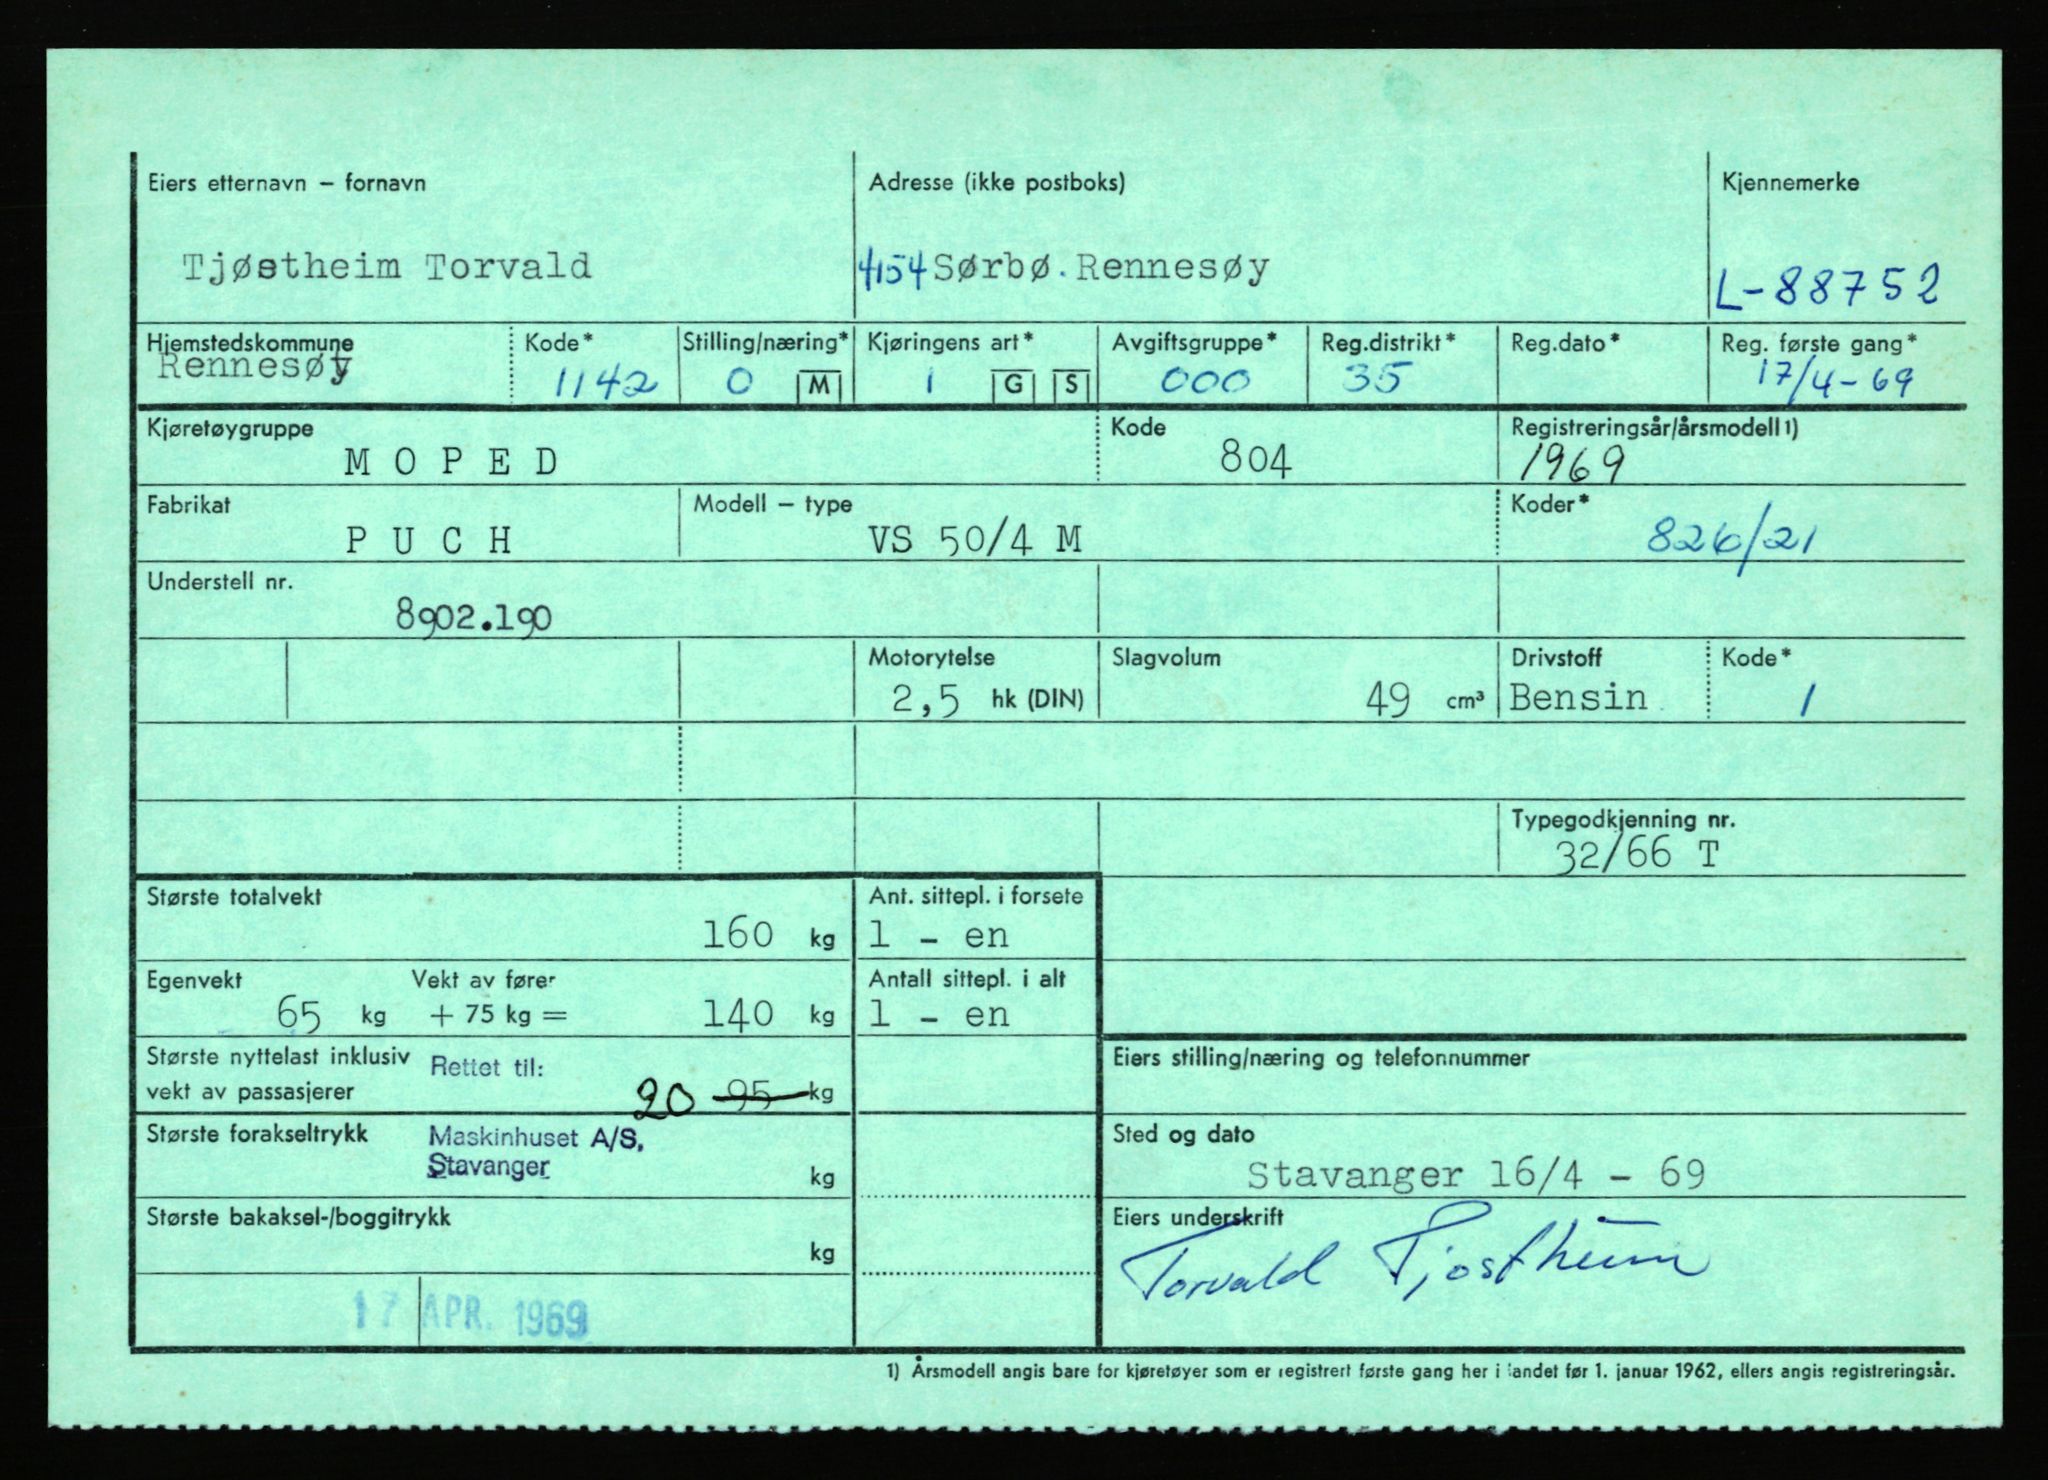 Eiers etternavn – fornavn
Adresse (ikke postboks)
Kjennemerke
Tjøstheim Torvald
4154 Sørbø. Rennesøy
L-88752
Hjemstedskommune
Kode*
Stilling/næring*
Kjøringens art*
Avgiftsgruppe*
Reg.distrikt*
Reg.dato*
Reg. første gang*
Rennesøy
1142
0 M
1 G S
000
35
17/4-69
Kjøretøygruppe
Kode
Registreringsår/årsmodell 1)
M O P E D
804
1969
Fabrikat
Modell – type
Koder*
P U C H
VS 50/4 M
826/21
Understell nr.
8902.190
Motorytelse
Slagvolum
Drivstoff
Kode*
2,5 hk (DIN)
49 cm³
Bensin
1
Typegodkjenning nr.
32/66 T
Største totalvekt
Ant. sittepl. i forsete
160 kg
1 - en
Egenvekt
Vekt av fører
Antall sittepl. i alt
65 kg
+ 75 kg =
140 kg
1 - en
Største nyttelast inklusiv
vekt av passasjerer
Rettet til:
20 95 kg
Eiers stilling/næring og telefonnummer
Største forakseltrykk
Maskinhuset A/S,
Stavanger
kg
Sted og dato
Stavanger 16/4 - 69
Største bakaksel-/boggitrykk
kg
Eiers underskrift
Torvald Tjostheim
17 APR. 1969
1) Årsmodell angis bare for kjøretøyer som er registrert første gang her i landet før 1. januar 1962, ellers angis registreringsår.